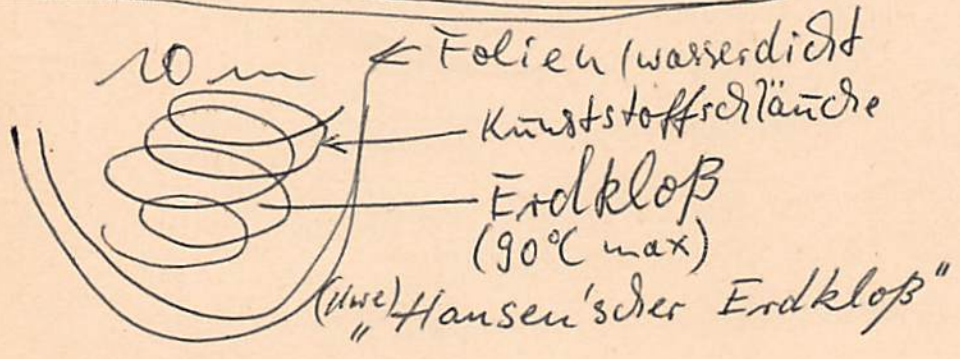 10 m
Folien/wasserdicht
Kunststoffschläuche
Erdkloß
(90°C max)
(Uwe) „Hansen'scher Erdkloß"